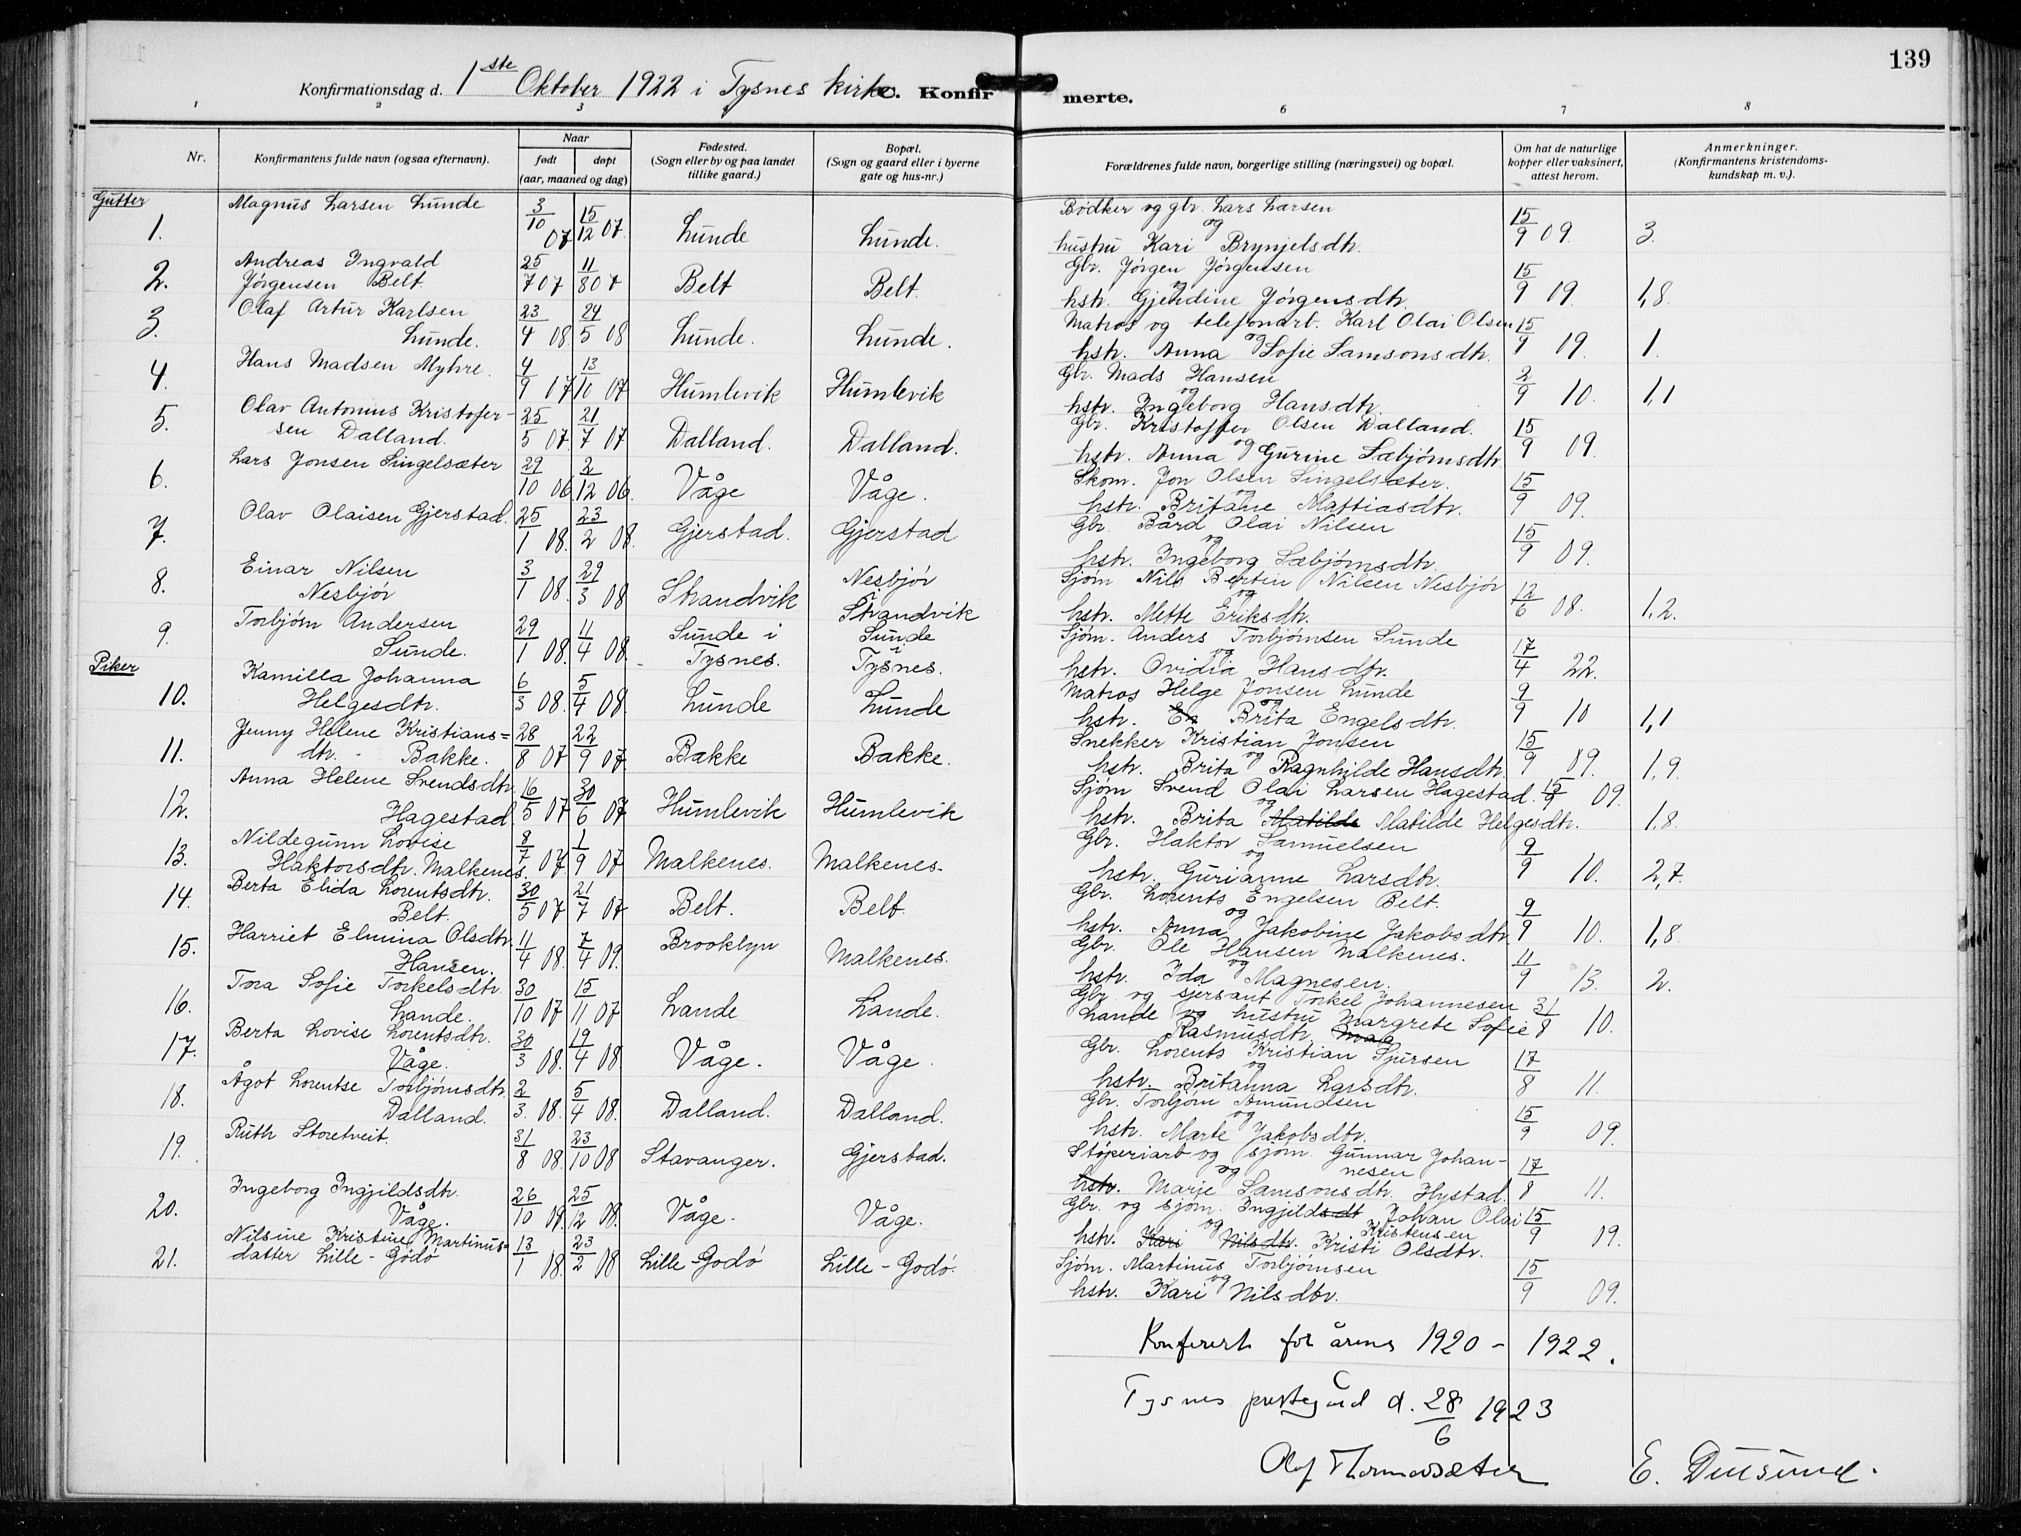 139
Konfirmationsdag d. 1ste Oktober 1922 i Tysnes kirke C. Konfirmerte.
1 2 3 6 7 8
Nr. Konfirmantens fulde navn (ogsaa efternavn). Naar født døpt (aar, maaned og dag) Fødested. (Sogn eller by og paa landet tillike gaard.) Bopæl. (Sogn og gaard eller i byerne gate og hus-nr.) Forældrenes fulde navn, borgerlige stilling (næringsvei) og bopæl. Om hat de naturlige kopper eller vaksinert, attest herom. Anmerkninger. (Konfirmantens kristendomskundskap m. v.).
Gutter
1. Magnus Larsen Lunde 3/10 07 15/12 07. Lunde Lunde. Bødker og gbr. Lars Larsen og hustru Kari Brynjelsdtr. 15/9 09. 3.
2. Andreas Ingvald Jørgensen Belt 25/7 07 11/8 07 Belt Belt. Gbr. Jørgen Jørgensen og hstr. Gjendine Jørgensdtr. 15/9 09. 1,8.
3. Olaf Artur Karlsen Lunde. 23/4 08 24/5 08 Lunde. Lunde. Matros og telefonarb. Karl Olai Olsen og hstr. Anna Sofie Samsonsdtr. 15/9 09. 1.
4. Hans Madsen Myhre. 4/9 07 13/10 07 Humlevik Humlevik Gbr. Mads Hansen og hstr. Ingeborg Hansdtr. 2/9 10. 1,1
5. Olav Antonius Kristofersen Dalland. 25/5 07 21/7 07 Dalland. Dalland. Gbr. Kristoffer Olsen Dalland. og hstr. Anna Gurine Sæbjørnsdtr. 15/9 09.
6. Lars Jonsen Singelsæter 29/10 06 2/12 06. Våge Våge. Skom. Jon Olsen Singelsæter. og hstr. Britane Mattiasdtr. 15/9 09.
7. Olav Olaisen Gjerstad. 25/1 08. 23/2 08. Gjerstad. Gjerstad Gbr. Bård Olai Nilsen og hstr. Ingeborg Sæbjørnsdtr. 15/9 09.
8. Einar Nilsen Nesbjør 3/1 08. 29/3 08 Strandvik Nesbjør i Strandvik Sjøm Nils Bertin Nilsen Nesbjør og hstr. Mette Eriksdtr. 12/6 08. 1,2.
9. Torbjørn Andersen Sunde. 29/1 08. 11/4 08. Sunde i Tysnes. Sunde i Tysnes. Sjøm. Anders Torbjørnsen Sunde og hstr. Ovidia Hansdtr. 17/4 22.
Piker
10. Kamilla Johanna Helgesdtr. 6/3 08. 5/4 08. Lunde Lunde Matros Helge Jonsen Lunde og hstr. En Brita Engelsdtr. 9/9 10 1,1
11. Jenny Helene Kristiansdtr. Bakke. 28/8 07 22/9 07. Bakke Bakke. Snekker Kristian Jonsen og hstr. Brita Ragnhilde Hansdtr. 15/9 09. 1,9.
12. Anna Helene Svendsdtr. Hagestad. 16/5 07 30/6 07 Humlevik Humlevik Sjøm Svend Olai Larsen Hagestad. og hstr. Brita Matilde Matilde Helgesdtr. 15/9 09. 1,8.
13. Nildegunn Lovise Haktorsdtr. Malkenes. 8/7 07 1/9 07 Malkenes. Malkenes. Gbr. Haktor Samuelsen og hstr. Gurianne Larsdtr. 9/9 10. 2,7.
14. Berta Elida Lorentsdtr. Belt. 30/5 07 21/7 07 Belt. Belt. Gbr. Lorents Engelsen Belt. og hstr. Anna Jakobine Jakobsdtr. 9/9 10. 1,8.
15. Harriet Elmina Olsdtr. Hansen. 11/4 08. 7/4 09. Brooklyn Malkenes. Gbr. Ole Hansen Malkenes. og hstr. Ida Magnesen. 11/9 13. 2.
16. Tora Sofie Torkelsdtr. Lande. 30/10 07 15/11 07 Lande Lande. Gbr. og sjersant Torkel Johannesen Lande og hustru Margrete Sofie Rasmusdtr. 31/8 10.
17. Berta Lovise Lorentsdtr. Våge. 30/3 08. 19/4 08. Våge. Våge. Gbr. Lorents Kristian Sjursen og hstr. Britanna Larsdtr. 17/8 11.
18. Ågot Lorentse Torbjørnsdtr. Dalland. 2/3. 08. 5/4 08. Dalland. Dalland. Gbr. Torbjørn Amundsen og hstr. Marte Jakobsdtr. 15/9 09.
19. Ruth Storetveit. 31/8 08. 23/10 08 Stavanger. Gjerstad. Støperiarb og sjøm. Gunnar Johannesen og hstr. Marie Samsonsdtr. Hystad. 17/8 11.
20. Ingeborg Ingjildsdtr. Våge. 26/10 09. 25/12 08. Våge. Våge. Gbr. og sjøm. Ingjildsdt Johan Olai Kristensen og hstr. Kari Nilsdtr. Kristi Olsdtr. 15/9 09.
21. Nilsine Kristine Martinusdatter Lille-Godø 13/1 08. 23/2 08 Lille-Godø Lille-Godø. Sjøm. Martinus Torbjørnsen og hstr. Kari Nilsdtr. 15/9 09.
Konferert for årene 1920 - 1922.
Tysnes prestegård d. 28/6 1923